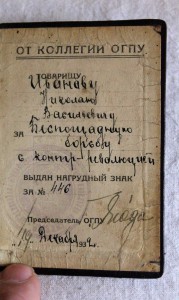 ОТ КОЛЛЕГИИ ОГПУ
ТОВАРИЩУ
Иванову
Николаю
Васильевичу
ЗА Беспощадную
борьбу
с контр-революцией
ВЫДАН НАГРУДНЫЙ ЗНАК
ЗА № 446
Председатель ОГПУ
Ягода
"19" Декабря 1932